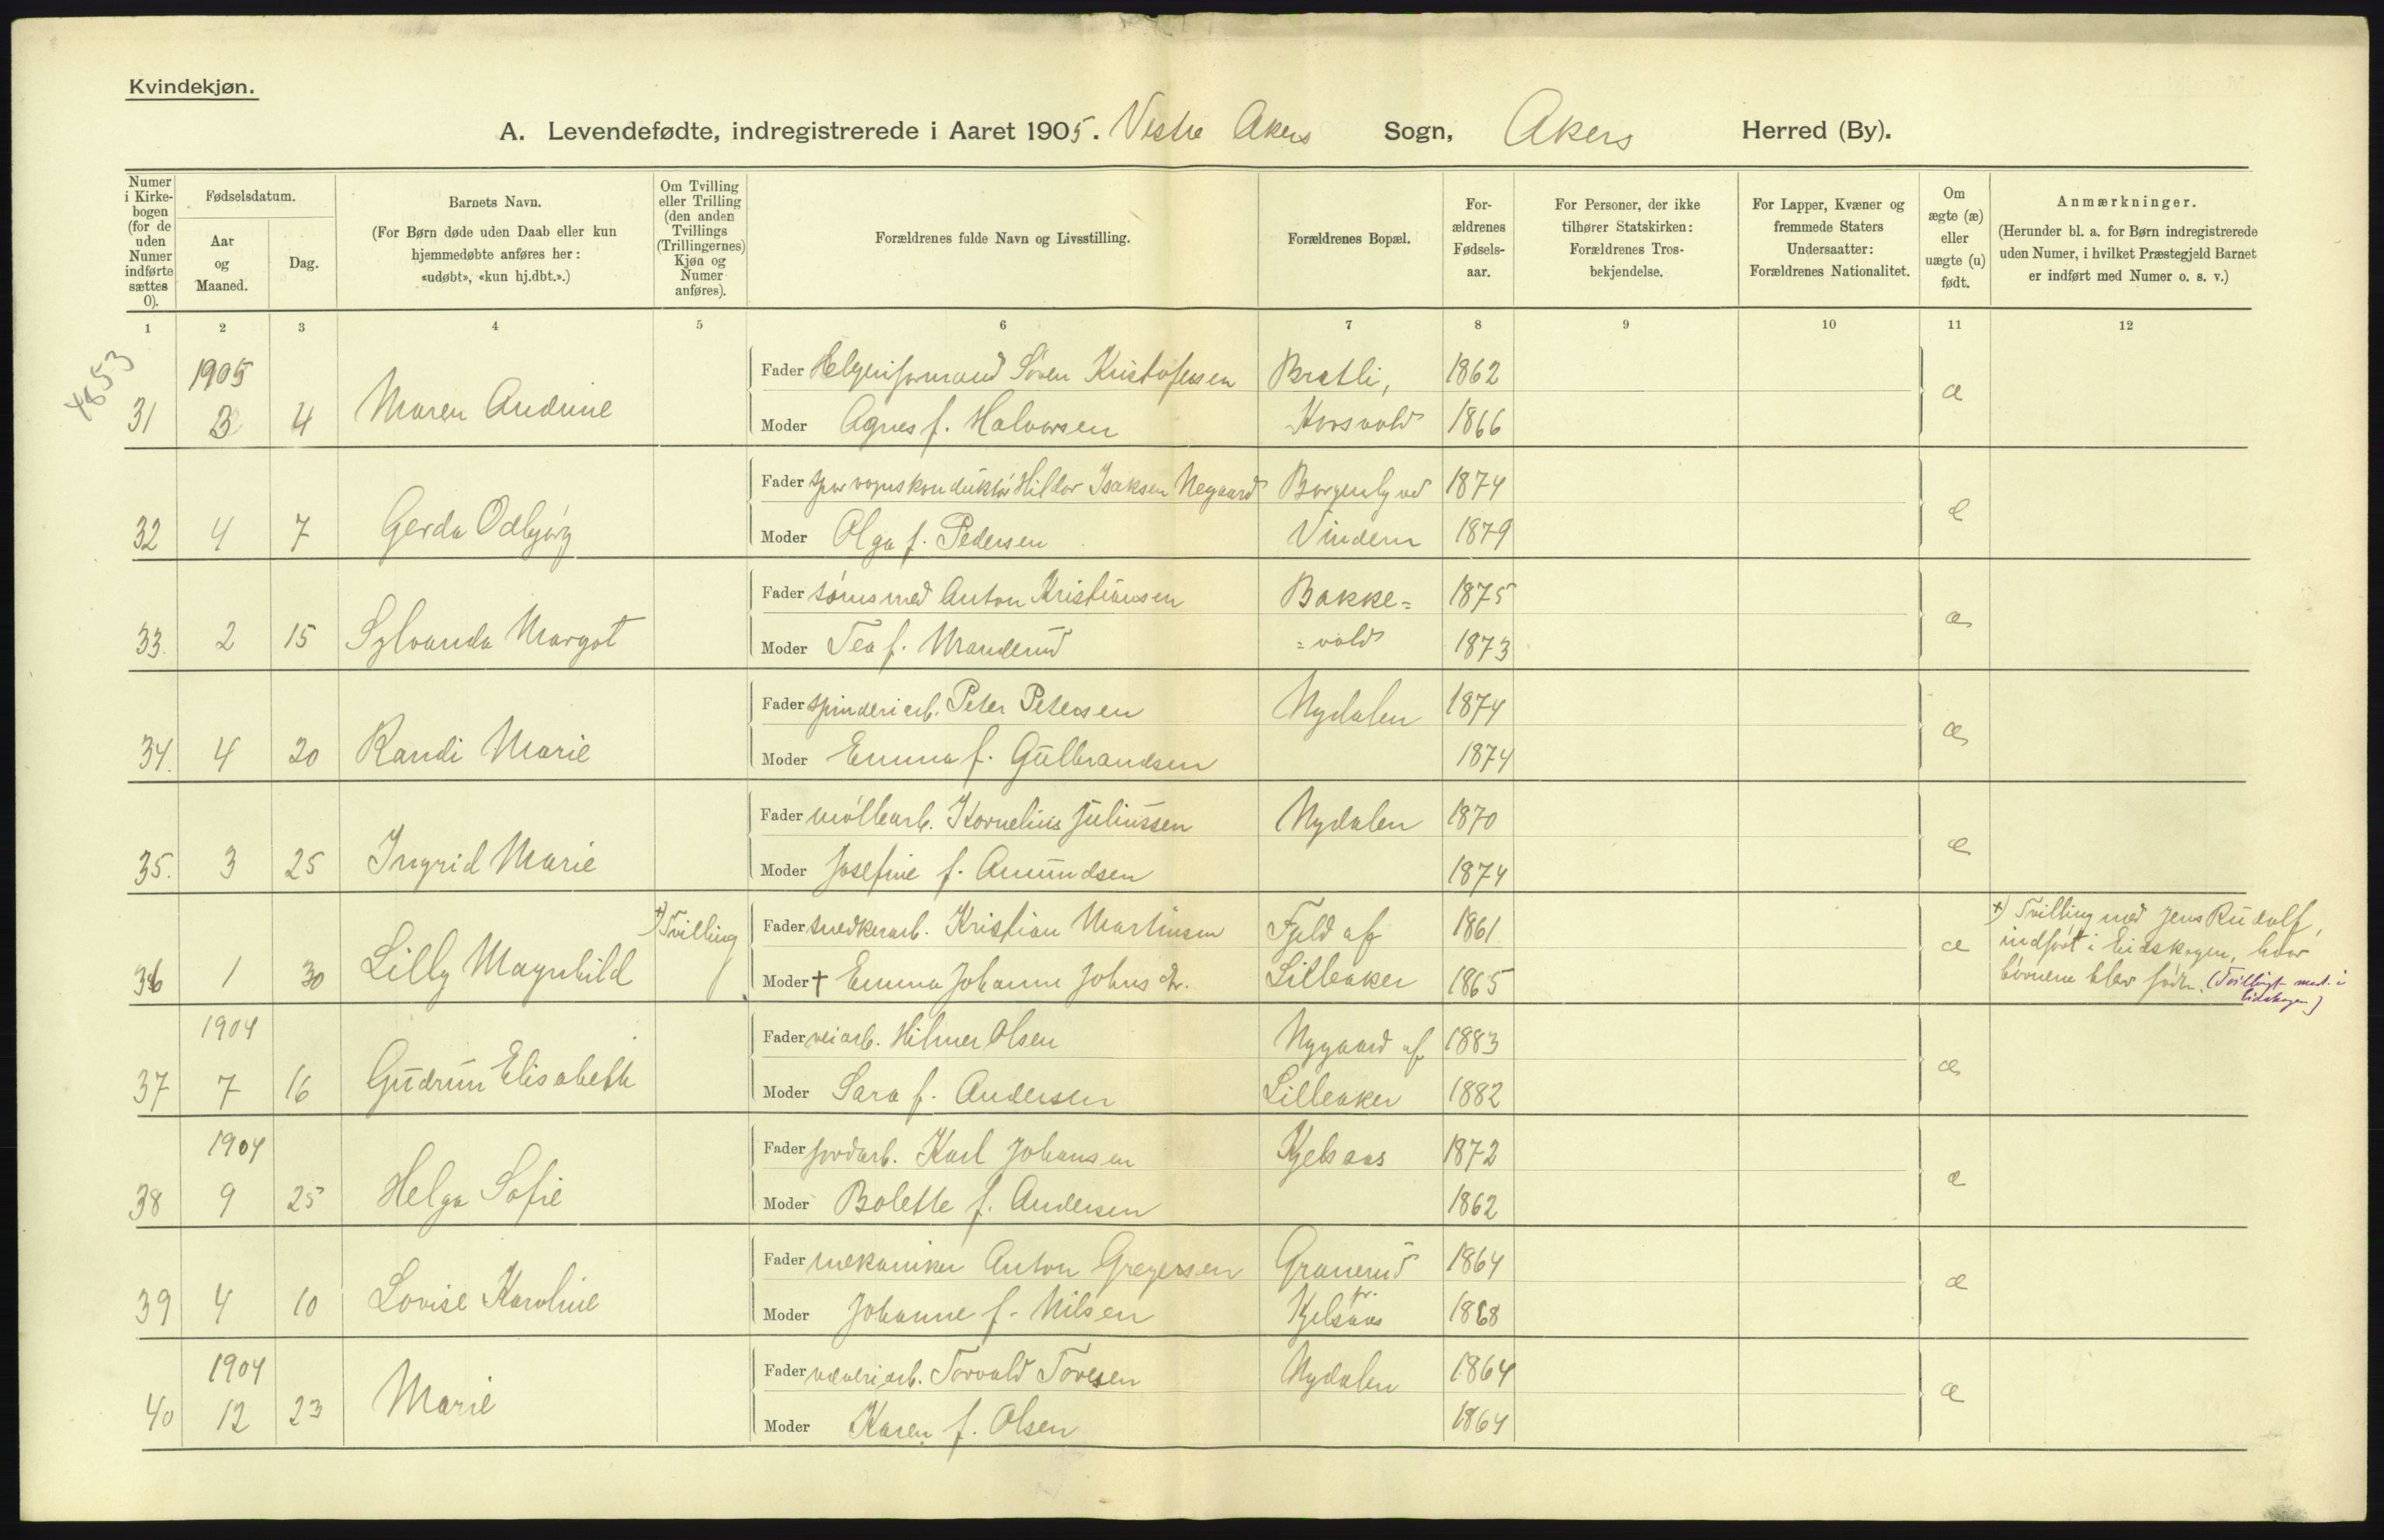 Kvindekjøn.
A. Levendefødte, indregistrerede i Aaret 1905. Vestre Akers Sogn, Akers Herred (By).
Numer i Kirkebogen (for de uden Numer indførte sættes 0).
Fødselsdatum.
Aar og Maaned.
Dag.
Barnets Navn.
(For Børn døde uden Daab eller kun hjemmedøbte anføres her: «udøbt», «kun hj.dbt.».)
Om Tvilling eller Trilling (den anden Tvillings (Trillingernes) Kjøn og Numer anføres).
Forældrenes fulde Navn og Livsstilling.
Forældrenes Bopæl.
Forældrenes Fødselsaar.
For Personer, der ikke tilhører Statskirken: Forældrenes Trosbekjendelse.
For Lapper, Kvæner og fremmede Staters Undersaatter: Forældrenes Nationalitet.
Om ægte (æ) eller uægte (u) født.
Anmærkninger.
(Herunder bl. a. for Børn indregistrerede uden Numer, i hvilket Præstegjeld Barnet er indført med Numer o. s. v.)
1 2 3 4 5 6 7 8 9 10 11 12
4853
1905 Fader Søren Kristofersen Bratli, 1862
31 3 4 Maren Andrine Moder Agnes f. Halvorsen Korsvold 1866 æ
Fader sporvognskonduktør Hildor Isaksen Negaard Borgenly ved 1874
32 4 7 Gerda Odbjørg Moder Olga f. Pedersen Vindern 1879 æ
Fader Anton Kristiansen Bakke= 1875
33. 2 15 Sylvanda Margot Moder Tea f. =vold 1873 æ
Fader spinderiarb. Peter Petersen Nydalen 1874
34. 4 20 Randi Marie Moder Emma f. Gulbrandsen 1874 æ
Fader møllearb. Kornelius Juliussen Nydalen 1870
35. 3 25 Ingrid Marie Moder Josefine f. Amundsen 1874 æ
+) Tvilling Fader snedkerarb. Kristian Martinsen Fjeld af 1861
36 1 30 Lilly Magnhild Moder + Emma Johanne Johns dr. Lilleaker 1865 æ
+) Tvilling med Jens Rudolf,
indført i Eidskogen, hvor
børnene blev født. (Tvillingt. med. i
Eidskogen)
1904 Fader veiarb. Hilmer Olsen Nygaard af 1883
37 7 16 Gudrun Elisabeth Moder Sara f. Andersen Lilleaker 1882 æ
1904 Fader jordarb. Karl Johansen Kjelsaas 1872
38 9 25 Helga Sofie Moder Bolette f. Andersen 1862 æ
Fader mekaniker Anton Gregersen Granerud 1864
39 4 10 Lovise Karoline Moder Johanne f. Nilsen pr. Kjelsaas 1868 æ
1904 Fader væveriarb. Torvald Toresen Nydalen 1864
40 12 23 Marie Moder Karen f. Olsen 1864 æ